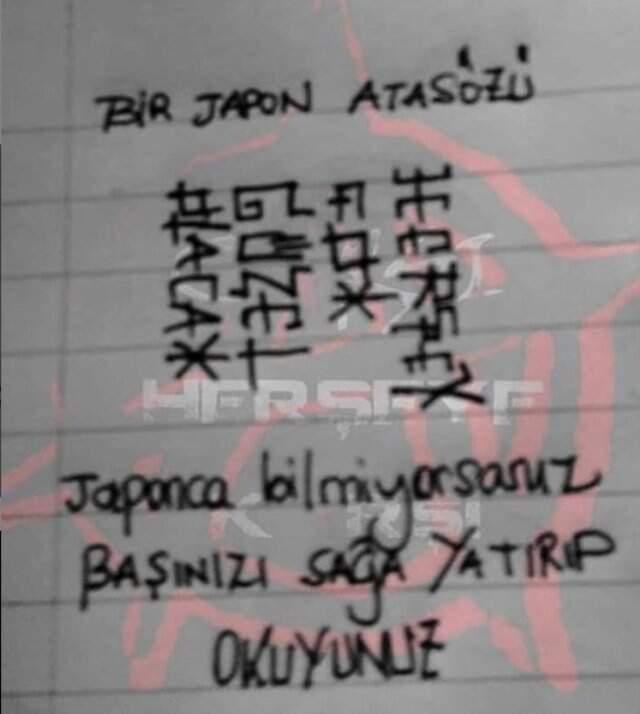 BİR JAPON ATASÖZÜ
HERŞEY
ÇOK
GÜZEL
OLACAK
HERŞEYE
Japonca bilmiyorsanız
BAŞINIZI SAĞA YATIRIP
OKUYUNUZ